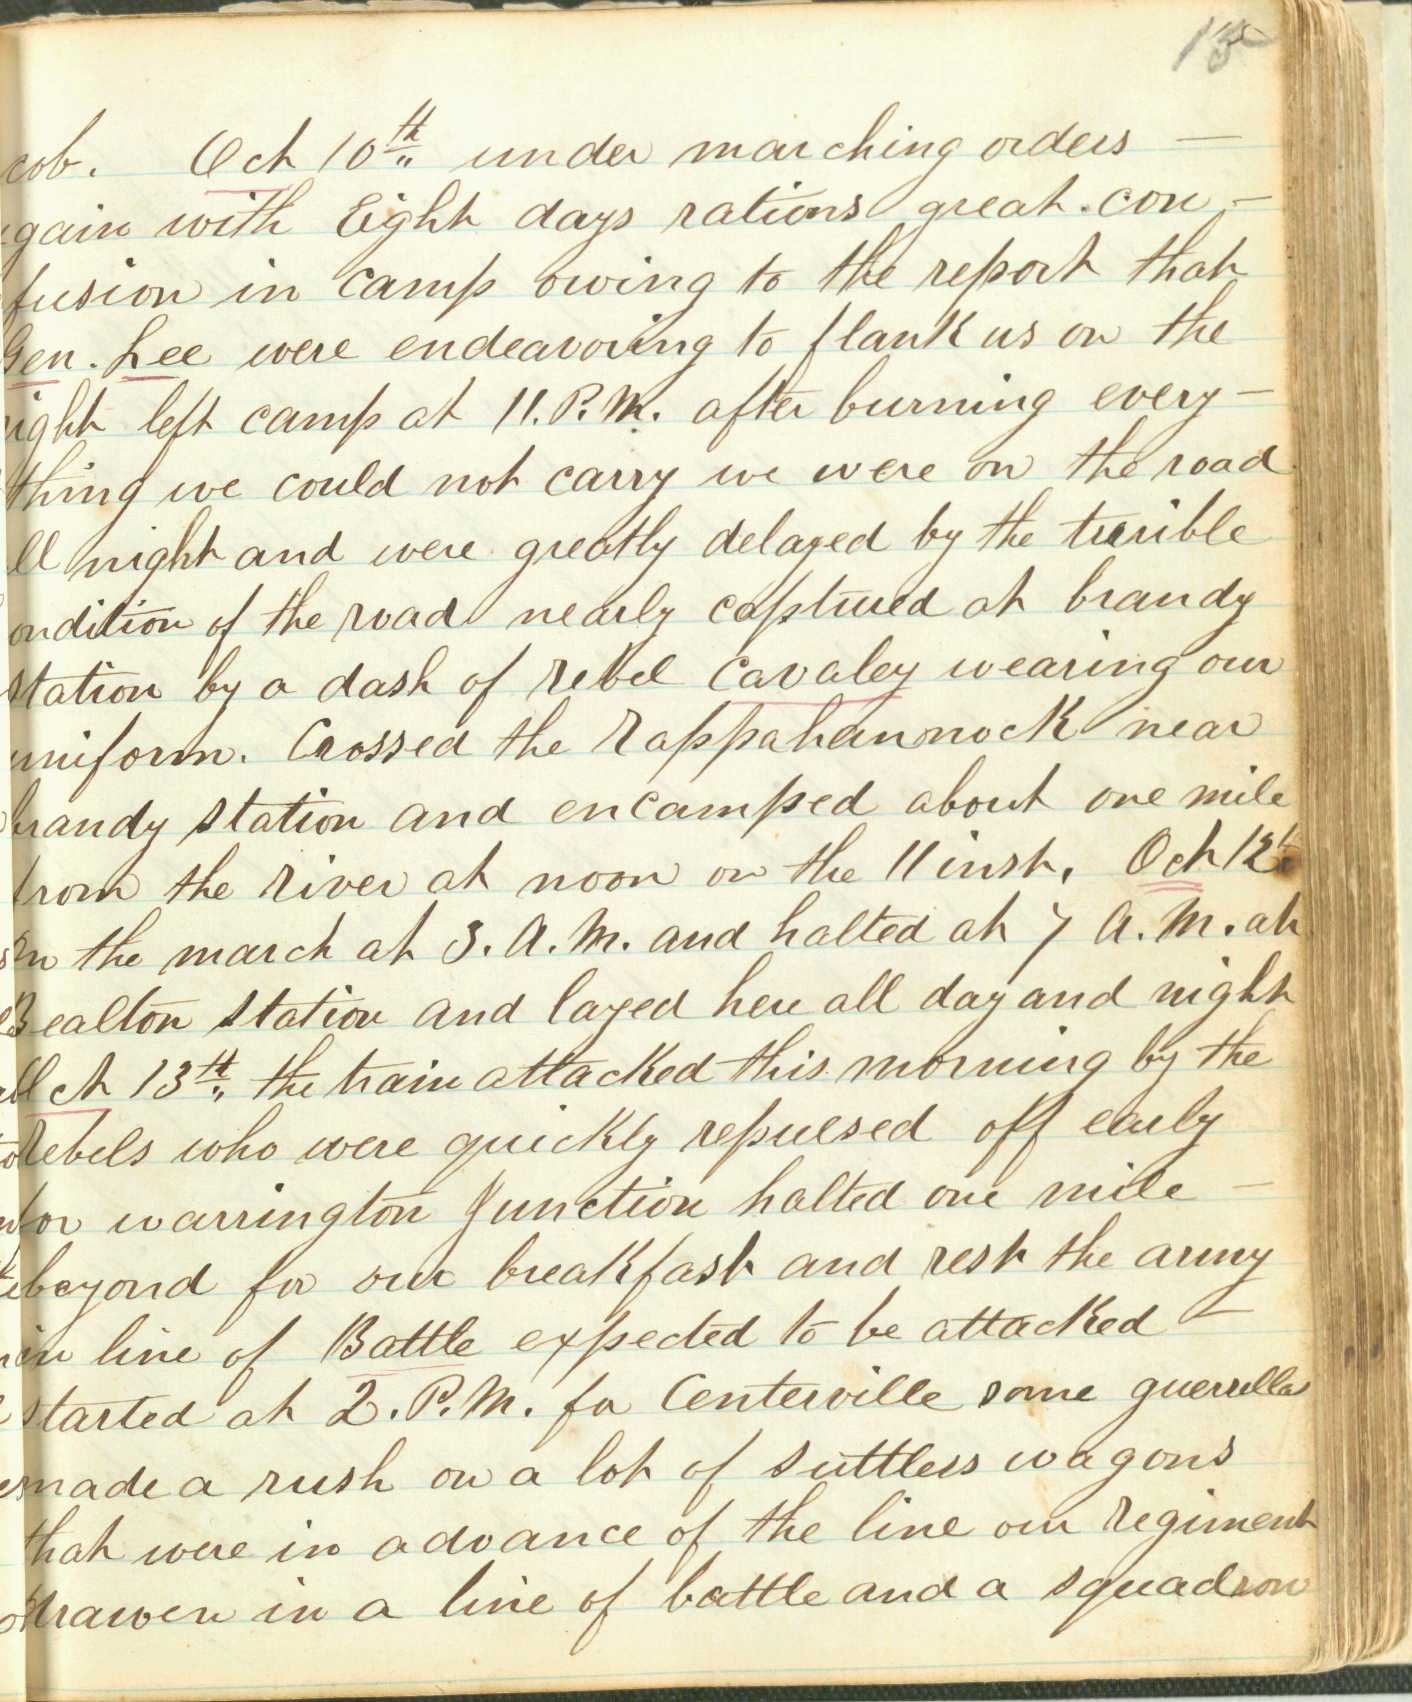 15
cob. Oct 10th under marching orders —
gain with Eight days rations great con -
fusion in camp owing to the report that
Gen. Lee were endeavoring to flank us on the
right left camp at 11. P. M. after burning every -
thing we could not carry we were on the road
ll night and were greatly delayed by the terrible
ondition of the road nearly captured at brandy
station by a dash of rebel cavaley wearing our
uniform. Crossed the Rappahannock near
brandy station and encamped about one mile
from the river at noon on the 11 inst. Oct 12th
on the march at 3. A. M. and halted at 7 A. M. at
Bealton station and layed here all day and night
ct 13th the train attacked this morning by the
rebels who were quickly repulsed off early
for warrington Junction halted one mile —
beyond for our breakfast and rest the army
in line of Battle expected to be attacked —
started at 2. P. M. for Centerville some guerrellas
made a rush on a lot of suttlers wagons
that were in advance of the line our regiment
drawen in a line of battle and a squadron